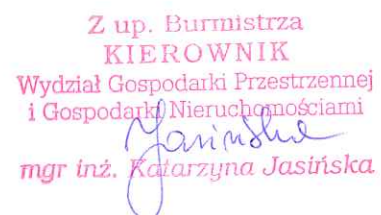 Z up. Burmistrza
KIEROWNIK
Wydział Gospodarki Przestrzennej
i Gospodarki Nieruchomościami
Jasińska
mgr inż. Katarzyna Jasińska